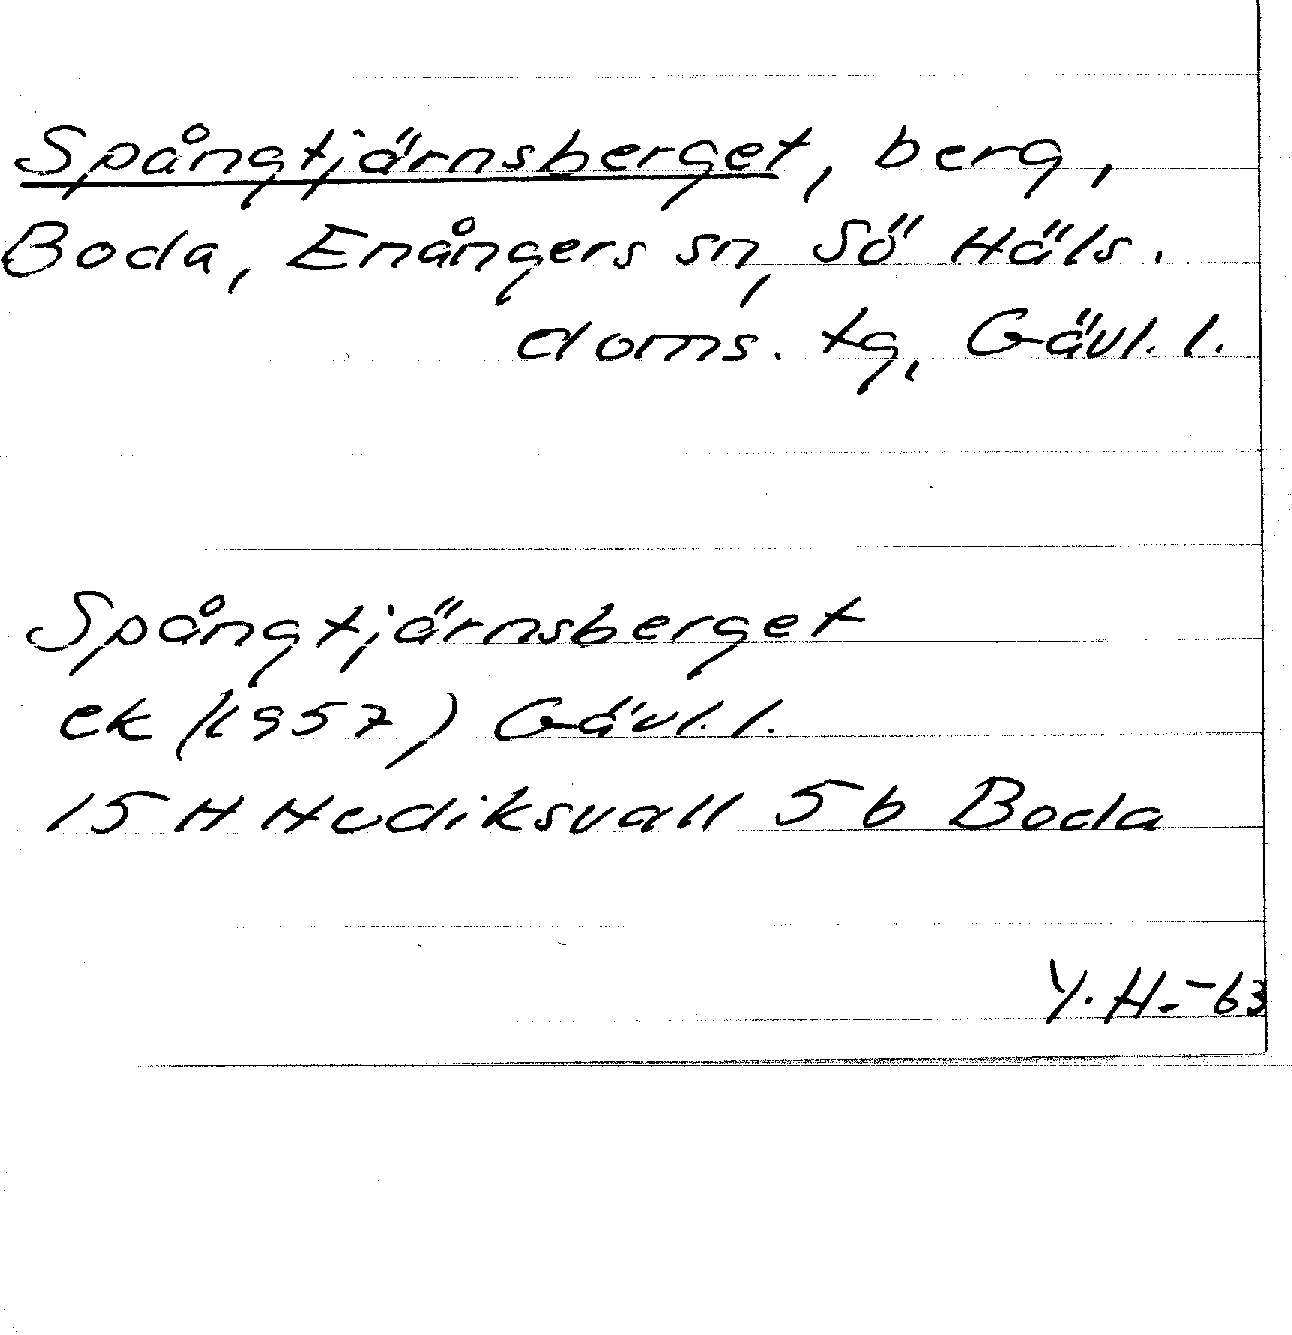 Spångtjärnsberget, berg,
Boda, Enångers sn, Sö Häls.
doms. tg, Gävl. l.
Spångtjärnsberget
ek (1957) Gävl. l.
15 H Hediksvall 5b Boda
Y. H. -63